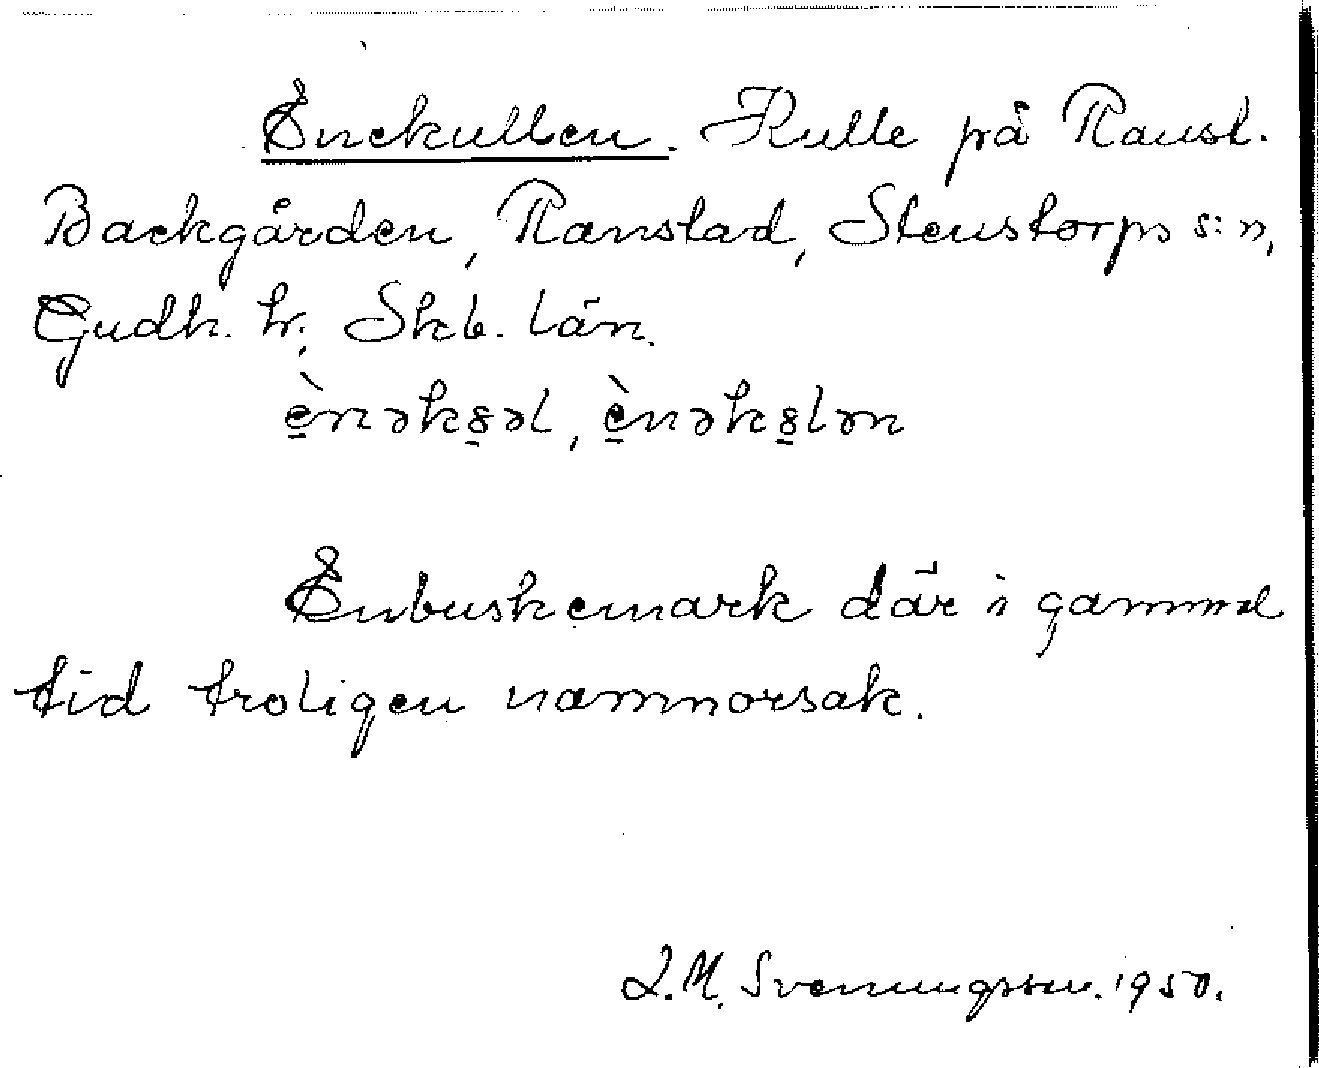 Enekullen. Kulle på Ranst.
Backgården, Ranstad, Stenstorps s:n,
Gudh. hr, Skb. län.
è̠nəks̠əl, è̠nəks̠lən
Enbuskemark där i gammal
tid troligen namnorsak.
L.M. Svenungsson. 1950.